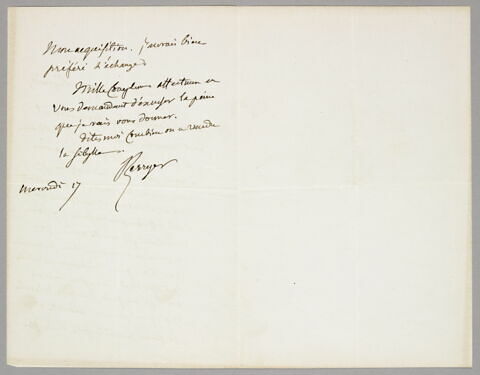 mon acquisition. j'aurais bien
préféré l'échange.
Mille Complimens affectueux en
vous demandant d'excuser la peine
que je vais vous donner.
dites moi Combien on a vendu
la Sibylle.
Berryer
mercredi 17